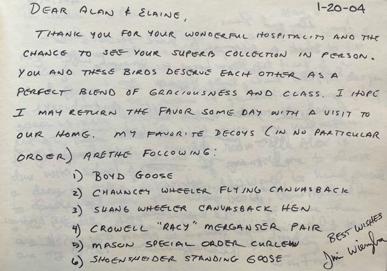 DEAR ALAN & ELAINE,
1-20-04
THANK YOU FOR YOUR WONDERFUL HOSPITALITY AND THE
CHANCE TO SEE YOUR SUPERB COLLECTION IN PERSON.
YOU AND THESE BIRDS DESERVE EACH OTHER AS A
PERFECT BLEND OF GRACIOUSNESS AND CLASS. I HOPE
I MAY RETURN THE FAVOR SOME DAY WITH A VISIT TO
OUR HOME. MY FAVORITE DECOYS (IN NO PARTICULAR
ORDER) ARE THE FOLLOWING:
1) BOYD GOOSE
2) CHAUNCEY WHEELER FLYING CANVASBACK
3) SHANG WHEELER CANVASBACK HEN
4) CROWELL "RACY" MERGANSER PAIR
5) MASON SPECIAL ORDER CURLEW
6) SHOENSHEIDER STANDING GOOSE
BEST WISHES
Jim